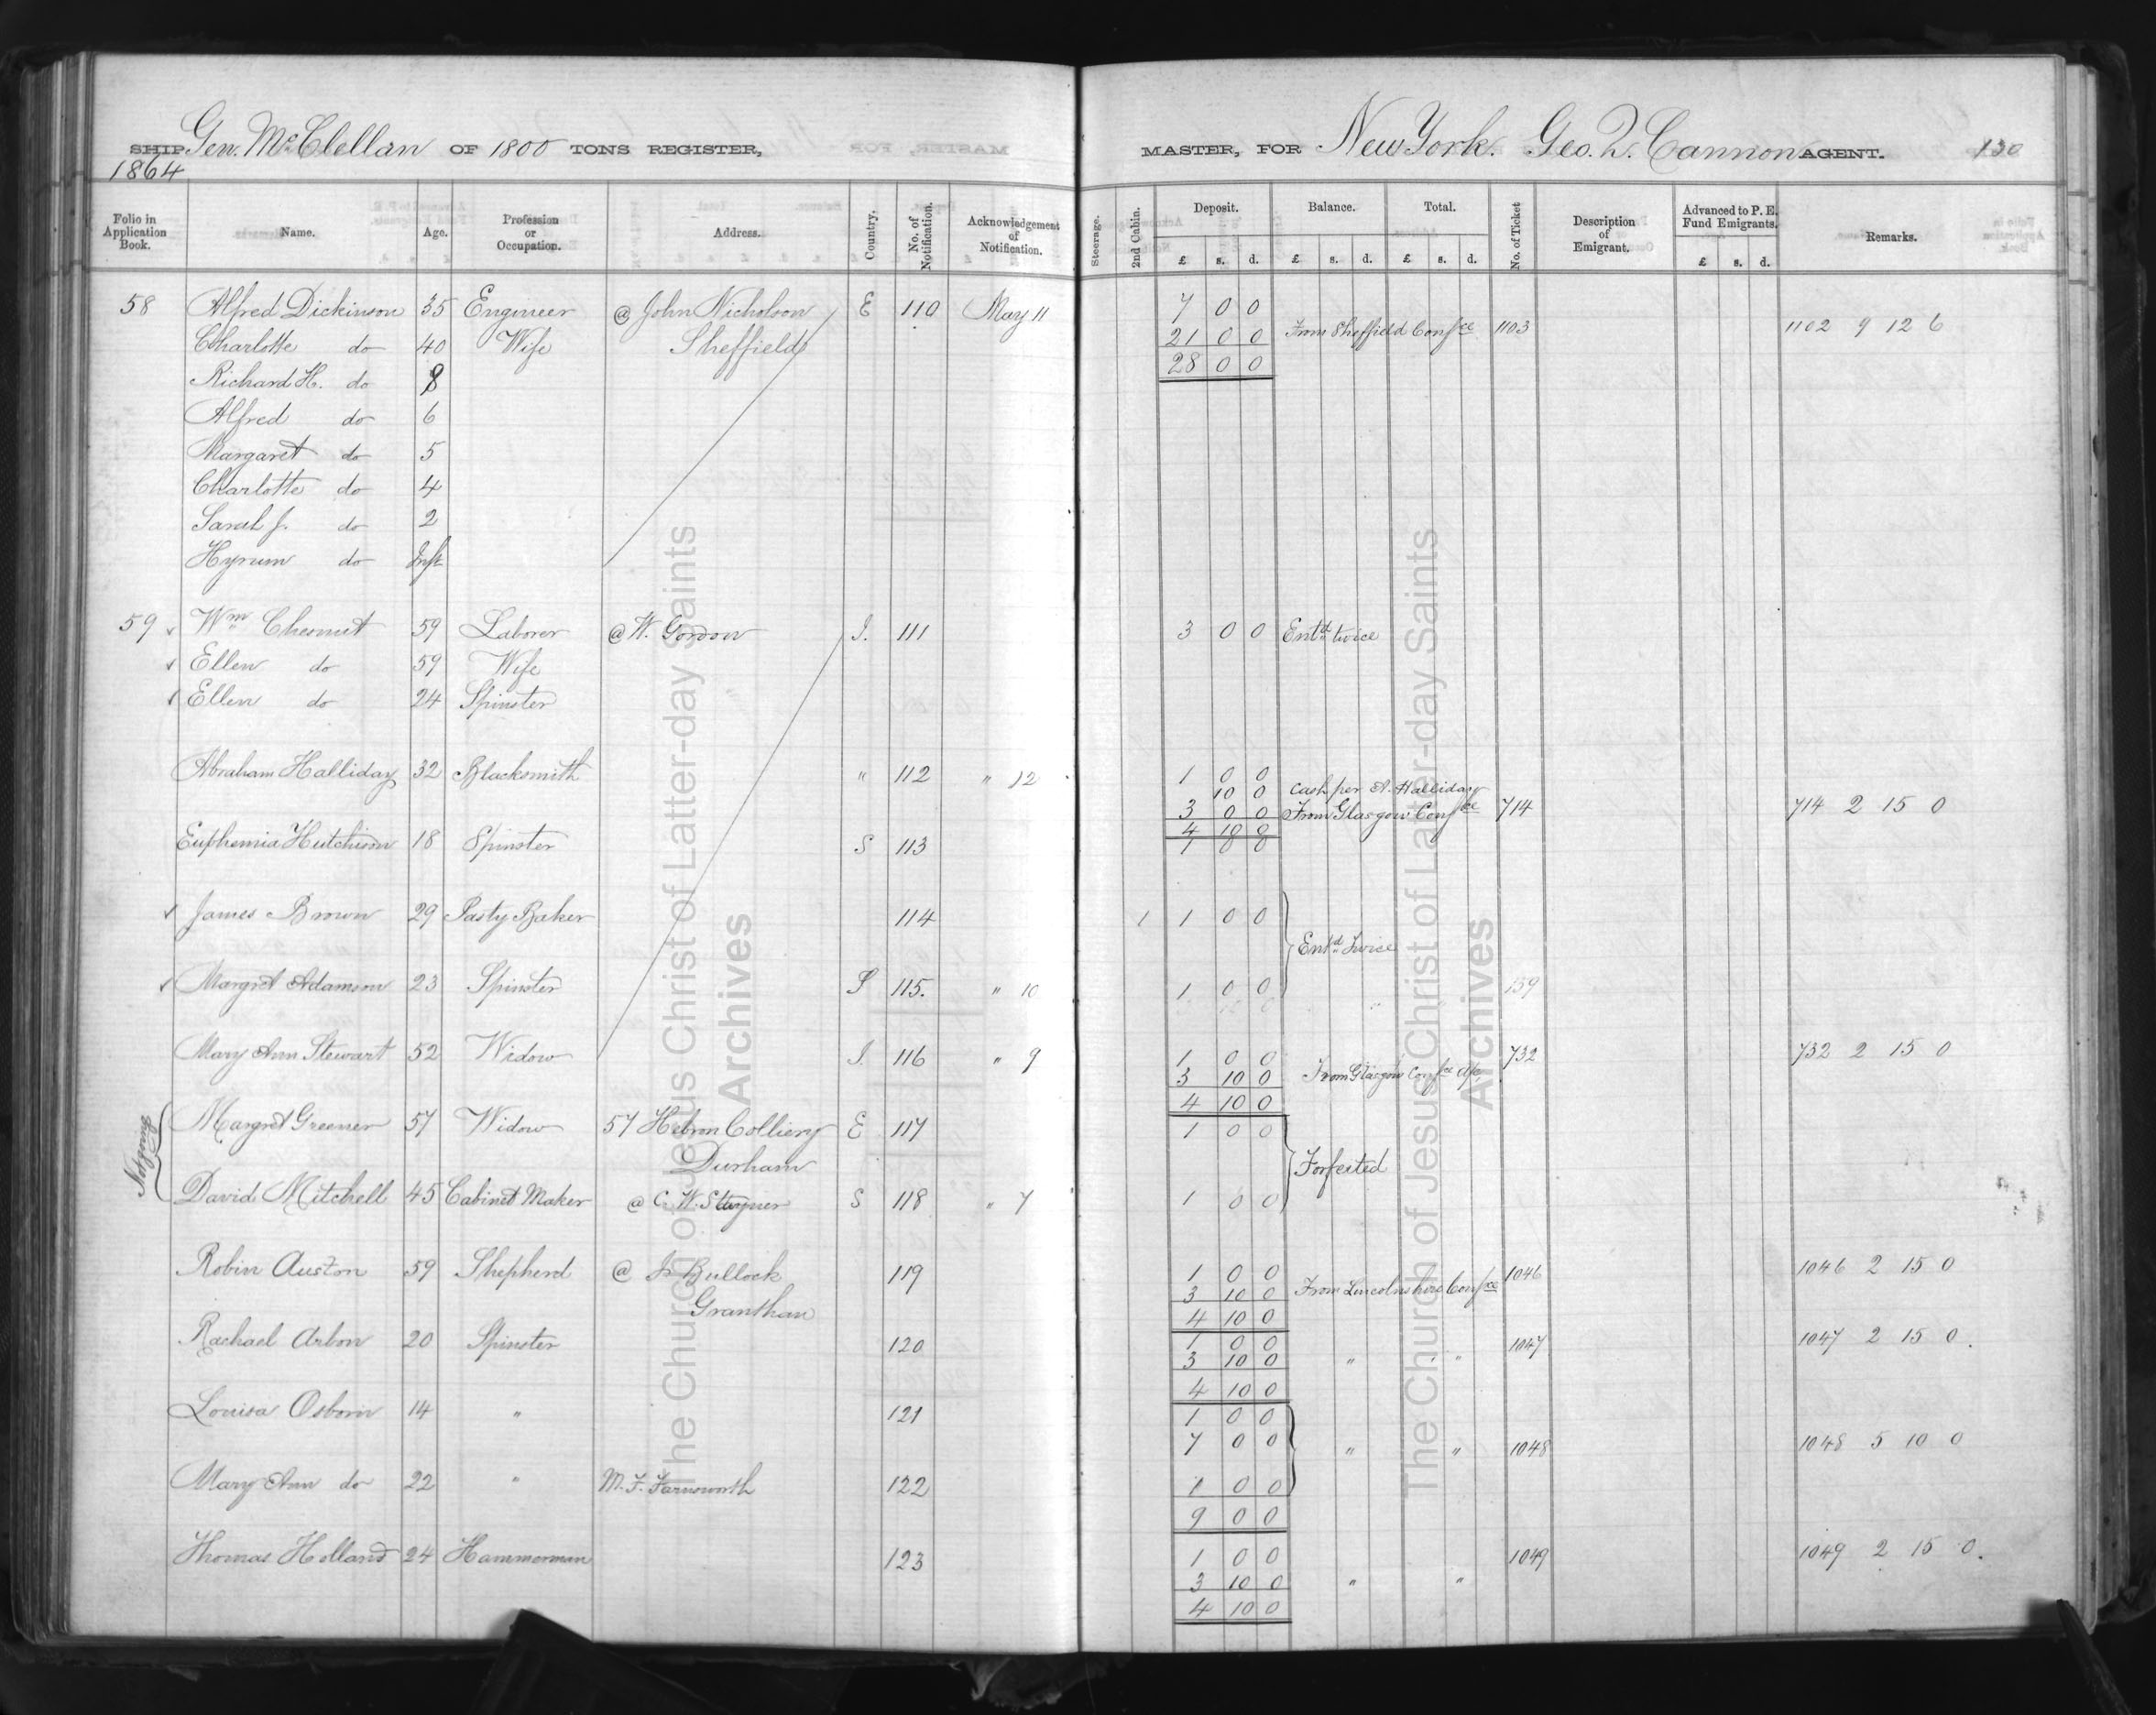 SHIP Gen. McClellan OF 1800 TONS REGISTER,
1864
MASTER, FOR New York. Geo. Q. Cannon AGENT. 130
Folio in Application Book. Name. Age. Profession or Occupation. Address. Country. No. of Notification. Acknowledgement of Notification. Steerage. 2nd Cabin. Deposit. Balance. Total. No. of Ticket Description of Emigrant. Advanced to P. E. Fund Emigrants. Remarks.
£ s. d. £ s. d. £ s. d. £ s. d.
58 Alfred Dickinson 35 Engineer @ John Nicholson E 110 May 11 7 0 0
Charlotte do 40 Wife Sheffield 21 0 0 From Sheffield Confce 1103 1102 9 12 6
Richard H. do 8 28 0 0
Alfred do 6
Margaret do 5
Charlotte do 4
Sarah J. do 2
Hyrum do Inft
59 Wm Chesnut 59 Laborer @ W. Gordon I. 111 3 0 0 Entd twice
Ellen do 59 Wife
Ellen do 24 Spinster
Abraham Halliday 32 Blacksmith " 112 " 12 1 0 0
10 0 Cash per A. Halliday
3 0 0 From Glasgow Confce 714 714 2 15 0
4 10 0
Euphemia Hutchison 18 Spinster S 113
James Brown 29 Pasty Baker 114 1 1 0 0
Entd Twice
Margret Adamson 23 Spinster S 115. " 10 1 0 0 139
Mary Ann Stewart 52 Widow I. 116 " 9 1 0 0 732 732 2 15 0
3 10 0 From Glasgow Confce
4 10 0
Not going
Margret Greener 57 Widow 57 Hebron Colliery E 117 1 0 0
Durham Forfeited
David Mitchell 45 Cabinet Maker @ C. W. Stayner S 118 " 7 1 0 0
Robin Auston 59 Shepherd @ J. Bullock 119 1 0 0 1046 1046 2 15 0
Granthan 3 10 0 From Lincolnshire Confce
4 10 0
Rachael Arbon 20 Spinster 120 1 0 0 1047 1047 2 15 0
3 10 0 " "
4 10 0
Louisa Osborn 14 " 121 1 0 0
7 0 0 " " 1048 1048 5 10 0
Mary Ann do 22 " M. F. Farnsworth 122 1 0 0
9 0 0
Thomas Holland 24 Hammerman 123 1 0 0 1049 1049 2 15 0.
3 10 0 " "
4 10 0
The Church of Jesus Christ of Latter-day Saints
Archives
The Church of Jesus Christ of Latter-day Saints
Archives